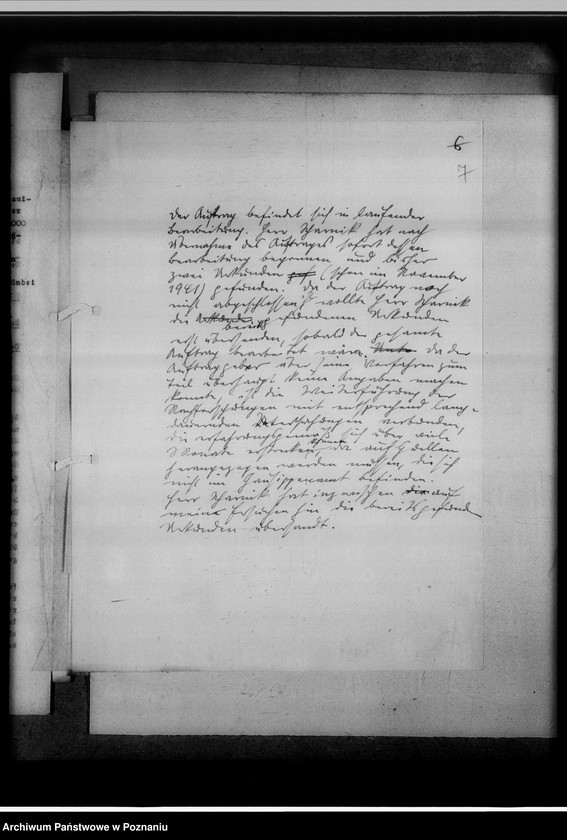 6
7
Der Auftrag befindet sich in laufender
Bearbeitung. Herr Scharnik hat nach
Übernahme des Auftrages sofort dessen
Bearbeitung begonnen und bisher
zwei Urkunden (schon im November
1941) gefunden. Da der Auftrag noch
nicht abgeschlossen ist wollte Herr Scharnik
die Urkunden gefundenen Urkunden
bereits
erst übersenden, sobald der gesamte
Auftrag bearbeitet wäre. Da der
Auftraggeber über seine Vorfahren zum
Teil überhaupt keine Angaben machen
konnte, ist die Weiterführung der
Nachforschungen mit entsprechend lang-
dauernden verbunden,
die erfahrungsgemäß sich über viele
Monate erstrecken, da auch Quellen
können
herangezogen werden müssen, die sich
nicht im Gausippenamt befinden.
Herr Scharnik hat inzwischen die auf
meine Ersuchen hin die bereits gefunde
Urkunden übersandt.
aut-
er
000
ünbei
Archiwum Państwowe w Poznaniu